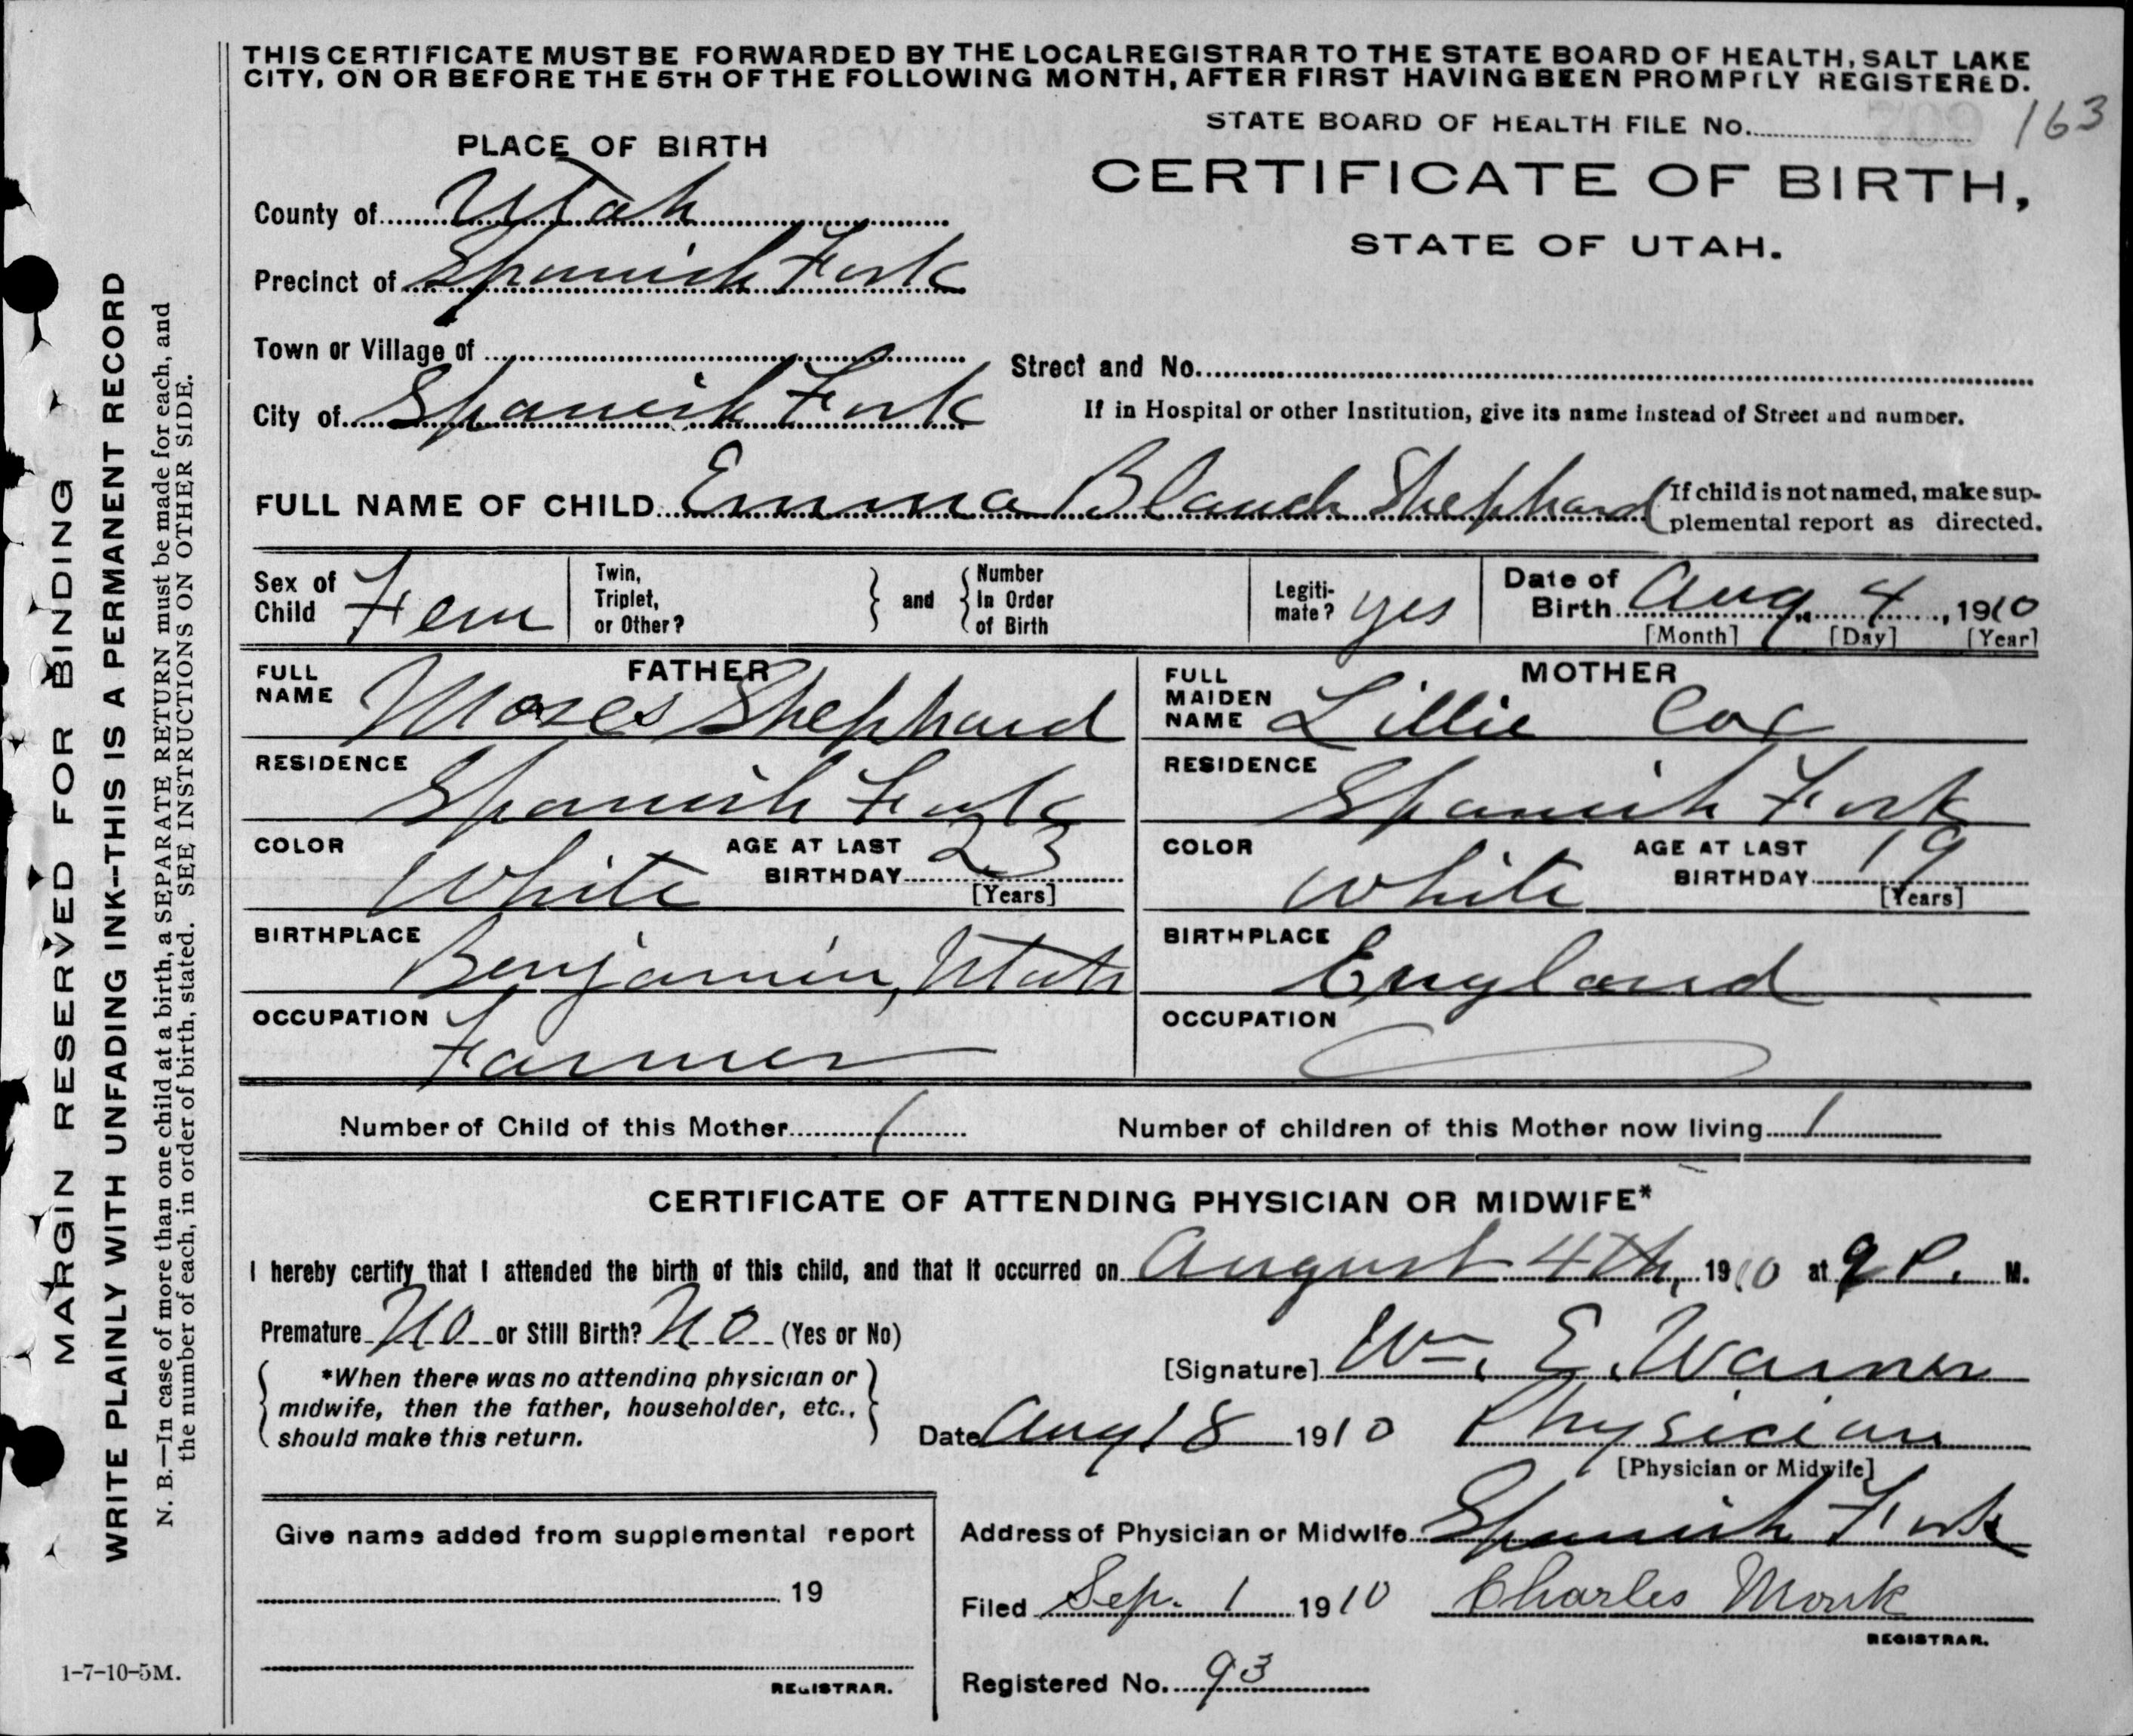 THIS CERTIFICATE MUST BE FORWARDED BY THE LOCAL REGISTRAR TO THE STATE BOARD OF HEALTH, SALT LAKE
CITY, ON OR BEFORE THE 5TH OF THE FOLLOWING MONTH, AFTER FIRST HAVING BEEN PROMPTLY REGISTERED.
STATE BOARD OF HEALTH FILE No. 163
PLACE OF BIRTH
CERTIFICATE OF BIRTH,
STATE OF UTAH.
County of Utah
Precinct of Spanish Fork
Town or Village of
Street and No.
City of Spanish Fork
If in Hospital or other Institution, give its name instead of Street and number.
FULL NAME OF CHILD Emma Blanch Shephard
If child is not named, make sup-
plemental report as directed.
Sex of
Child Fem
Twin,
Triplet,
or Other?
and
Number
In Order
of Birth
Legiti-
mate? yes
Date of
Birth Aug. 4, 1910
[Month] [Day] [Year]
FATHER
FULL
NAME Moses Shephard
RESIDENCE
Spanish Fork
COLOR White
AGE AT LAST
BIRTHDAY 23
[Years]
BIRTHPLACE
Benjamin, Utah
OCCUPATION
Farmer
MOTHER
FULL
MAIDEN
NAME Lillie Cox
RESIDENCE
Spanish Fork
COLOR White
AGE AT LAST
BIRTHDAY 19
[Years]
BIRTHPLACE
England
OCCUPATION
Number of Child of this Mother 1
Number of children of this Mother now living 1
CERTIFICATE OF ATTENDING PHYSICIAN OR MIDWIFE*
I hereby certify that I attended the birth of this child, and that it occurred on August 4th, 1910 at 9 P. M.
Premature No or Still Birth? No (Yes or No)
[Signature] Wm. E. Warner
*When there was no attending physician or
midwife, then the father, householder, etc.,
should make this return.
Date Aug 18 1910 Physician
[Physician or Midwife]
Give name added from supplemental report
19
REGISTRAR.
Address of Physician or Midwife Spanish Fork
Filed Sep. 1 1910 Charles Monk
REGISTRAR.
Registered No. 93
MARGIN RESERVED FOR BINDING
WRITE PLAINLY WITH UNFADING INK--THIS IS A PERMANENT RECORD
N. B.—In case of more than one child at a birth, a SEPARATE RETURN must be made for each, and
the number of each, in order of birth, stated. SEE INSTRUCTIONS ON OTHER SIDE.
1-7-10-5M.